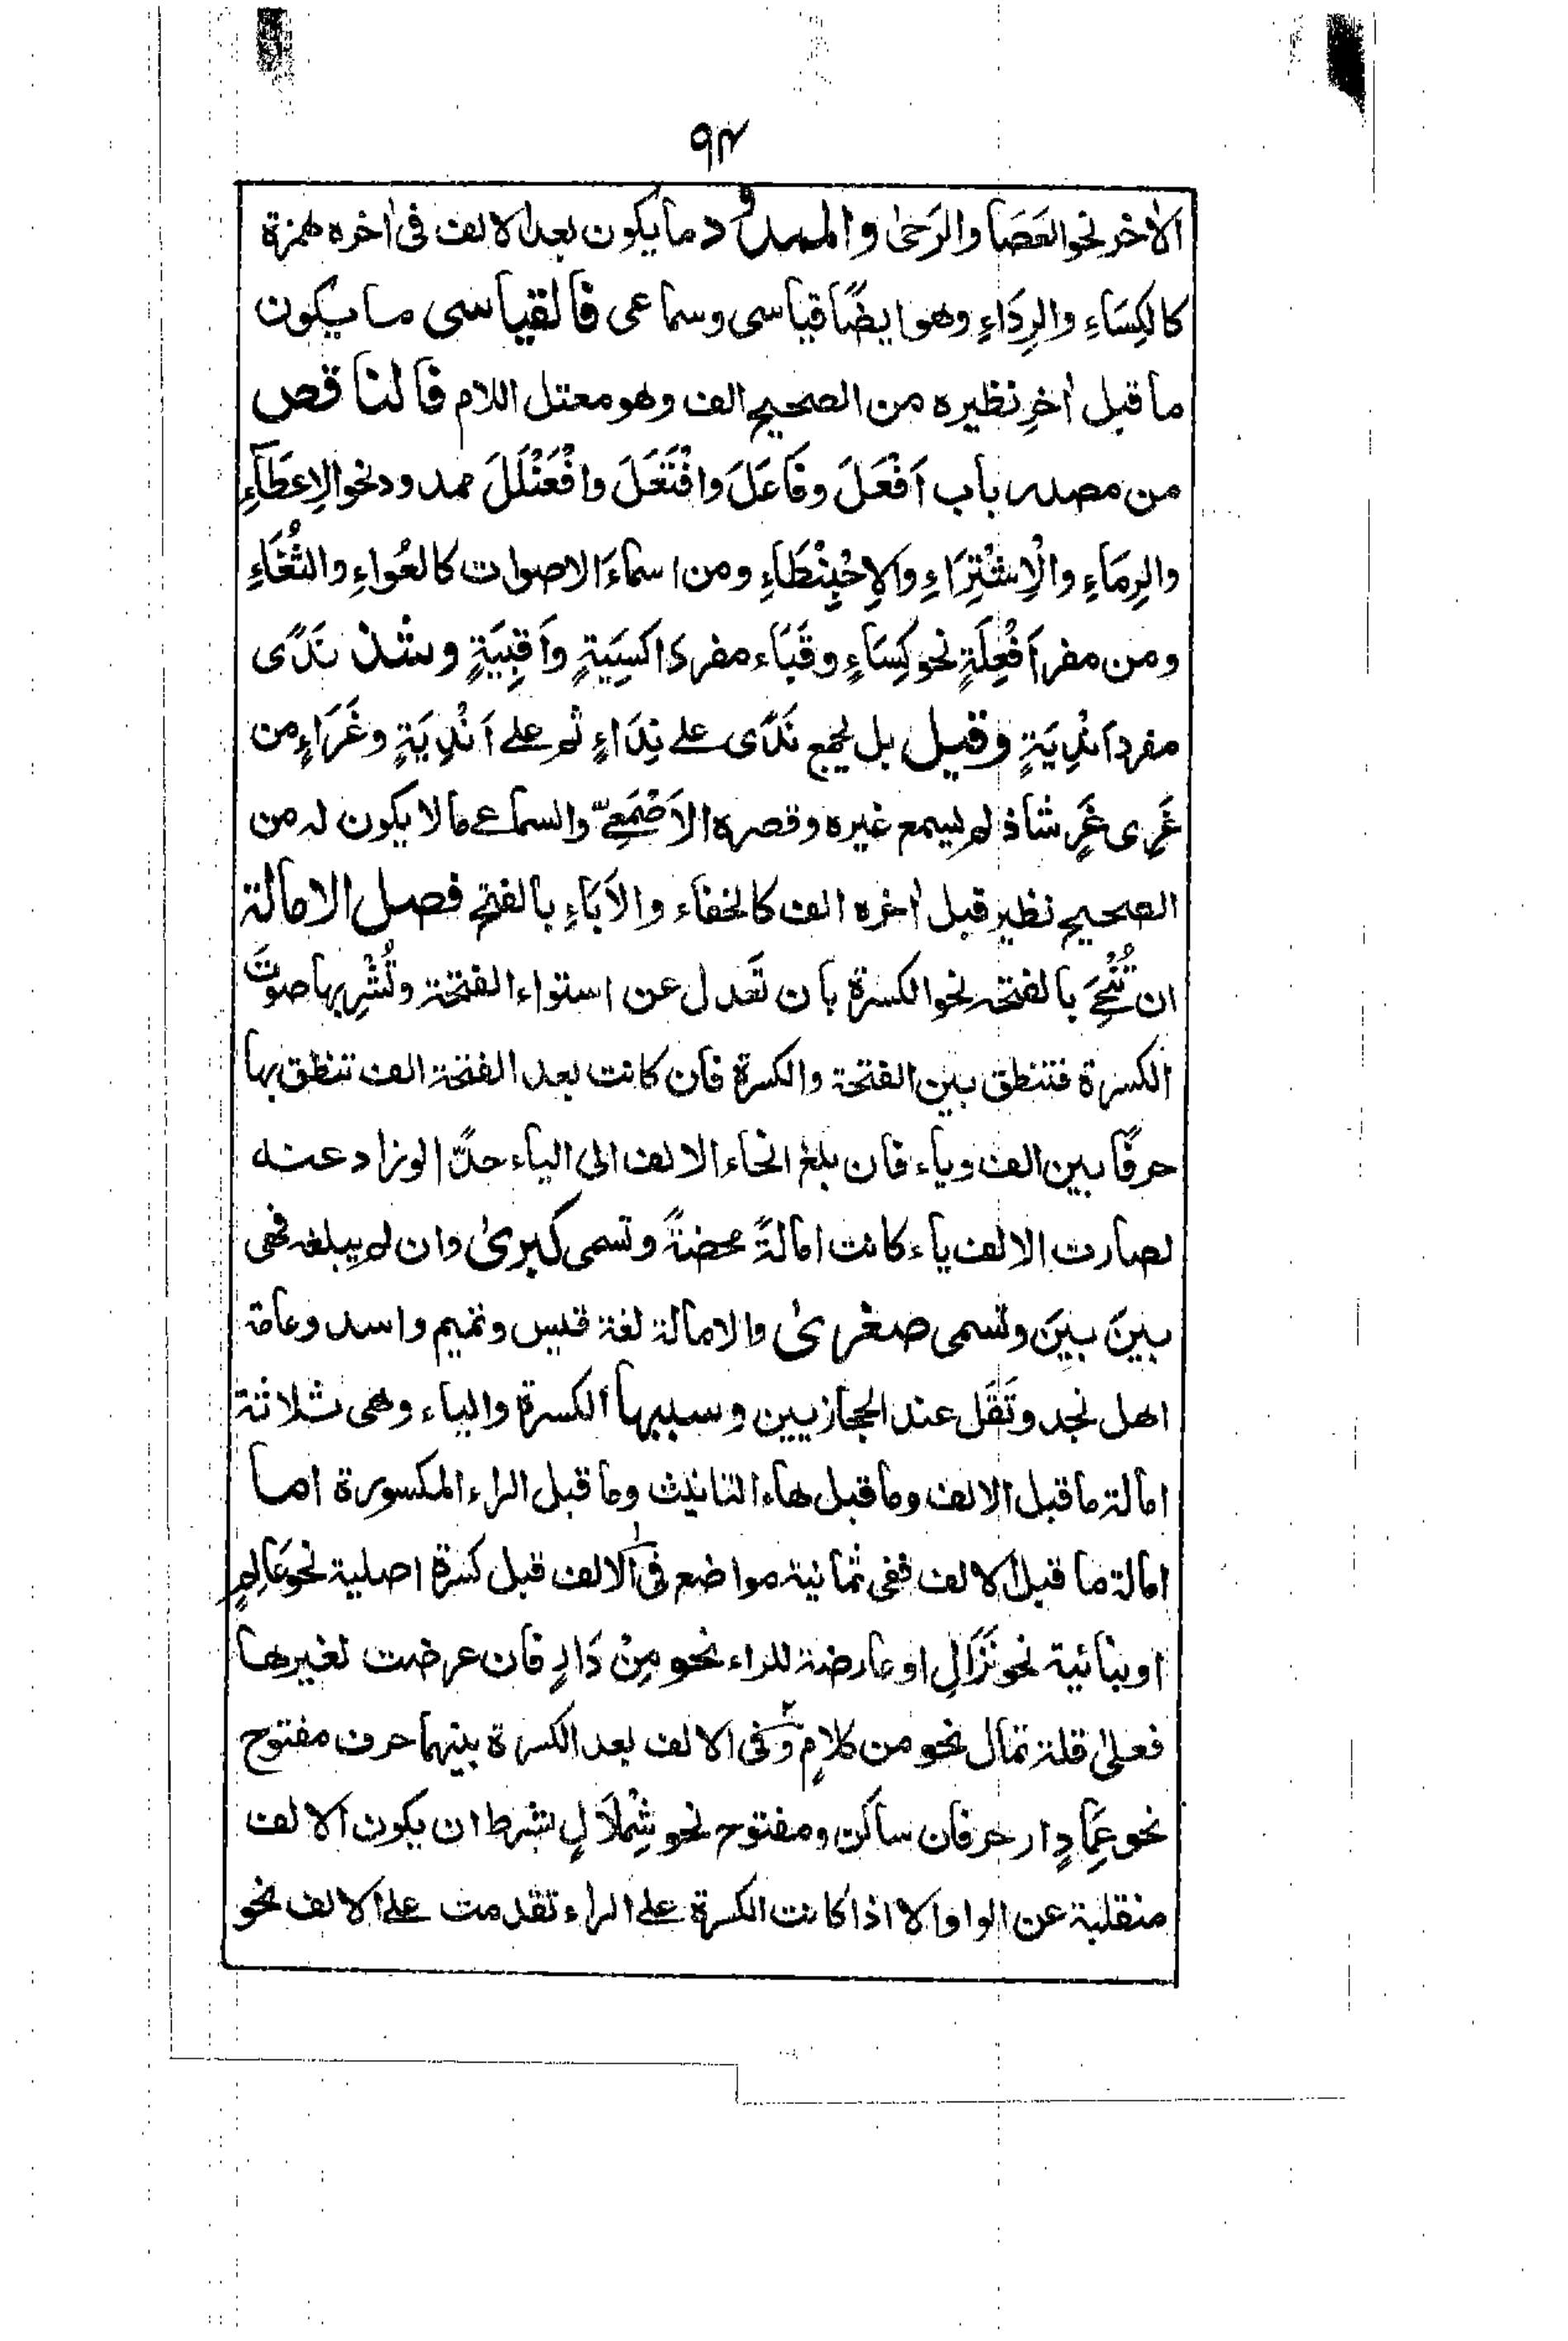 ٩٣
الاٰخر نحو العَصَا والرَحىٰ والممدود ما يكون بعد الالف فى اٰخره همزة
كالكِسَاءِ والرِدَاءِ وهو ايضًا قياسى وسماعى فالقياسى ما يكون
ما قبل اٰخرِ نظيره من الصحيح الف وهو معتل اللام فالناقص
من مصدر باب اَفْعَلَ وفَاعَلَ وافْتَعَلَ وافْعَنْلَلَ ممدود نحو الاِعطَآءِ
والرِمَاءِ والْاِشْتِرَاءِ والاِحْبِنْطَاءِ ومن اسماءَ الاصوات كالعُواءِ والثُغَاءِ
ومن مفر اَفْعِلَةٍ نحو كِسَاءٍ وقَبَاء مفرد اكسِيَةٍ واَقبِيَةٍ وشذ نَدًى
مفرد اَنْدِيَةٍ وقيل بل يجمع نَدًى على نِدَاءٍ ثم على اَنْدِيَةٍ وغَرَاءٍ من
غَرِى غَرٍ شاذ لم يسمع غيره وقصره الاَصْمَعِىّ والسماعى ما لا يكون له من
الصحيح نظير قبل اٰخره الف كالخفاء والاَبَاءِ بالفتح فصل الامالة
ان تُنْحِىَ بالفتحة نحو الكسرة بان تَعدل عن استواء الفتحة وتُشْرِبها صوتَ
الكسرة فتنطق بين الفتحة والكسرة فان كانت بعد الفتحة الف تنطق بها
حرفًا بين الف وياء فان بلغ انحاء الالف الى الياء حدًّا لو زاد عنه
لصارت الالف ياء كانت امالةً محضةً وتسمى كبرىٰ وان لم يبلغه فهى
بينَ بينَ وتسمى صغرىٰ والامالة لغة قيس وتميم واسد وعامة
اهل نجد وتَقَل عند الحجازيين وسببها الكسرة والياء وهى ثلاثة
امالة ما قبل الالف وما قبل هاء التانيث وما قبل الراء المكسورة اما
امالة ما قبل الالف ففى ثمانية مواضع فى الالف قبل كسرة اصلية نحو عَالِمٍ
او بنائية نحو نَزَالِ او عارضة للراء نحو مِنْ دَارٍ فان عرضت لغيرها
فعلىٰ قلة تمال نحو من كلامٍ وفى الالف بعد الكسرة بينهما حرف مفتوح
نحو عِمَادٍ ار حرفان ساكن ومفتوح نحو شِمْلَالٍ بشرط ان يكون الالف
منقلبة عن الواو الا اذا كانت الكسرة على الراء تقدمت على الالف نحو